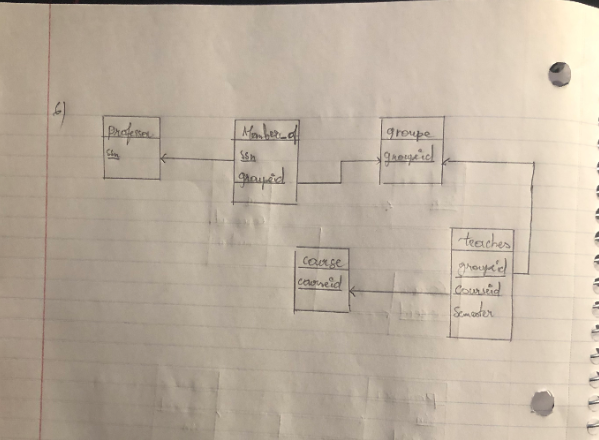 6)
Professor
ssn
Member_of
ssn
groupid
groupe
groupid
course
courseid
teaches
groupid
courseid
Semester